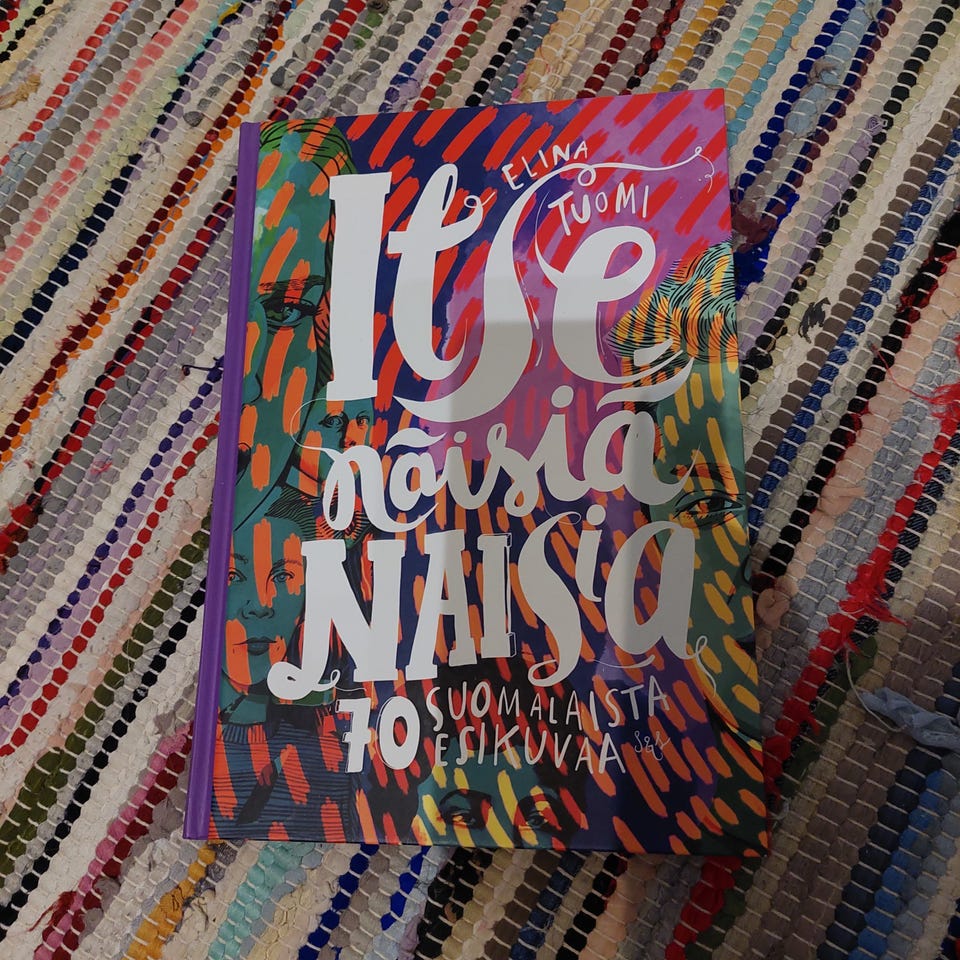 ELINA
TUOMI
Itse
näisiä
NAISIA
70 SUOMALAISTA
ESIKUVAA
S&S